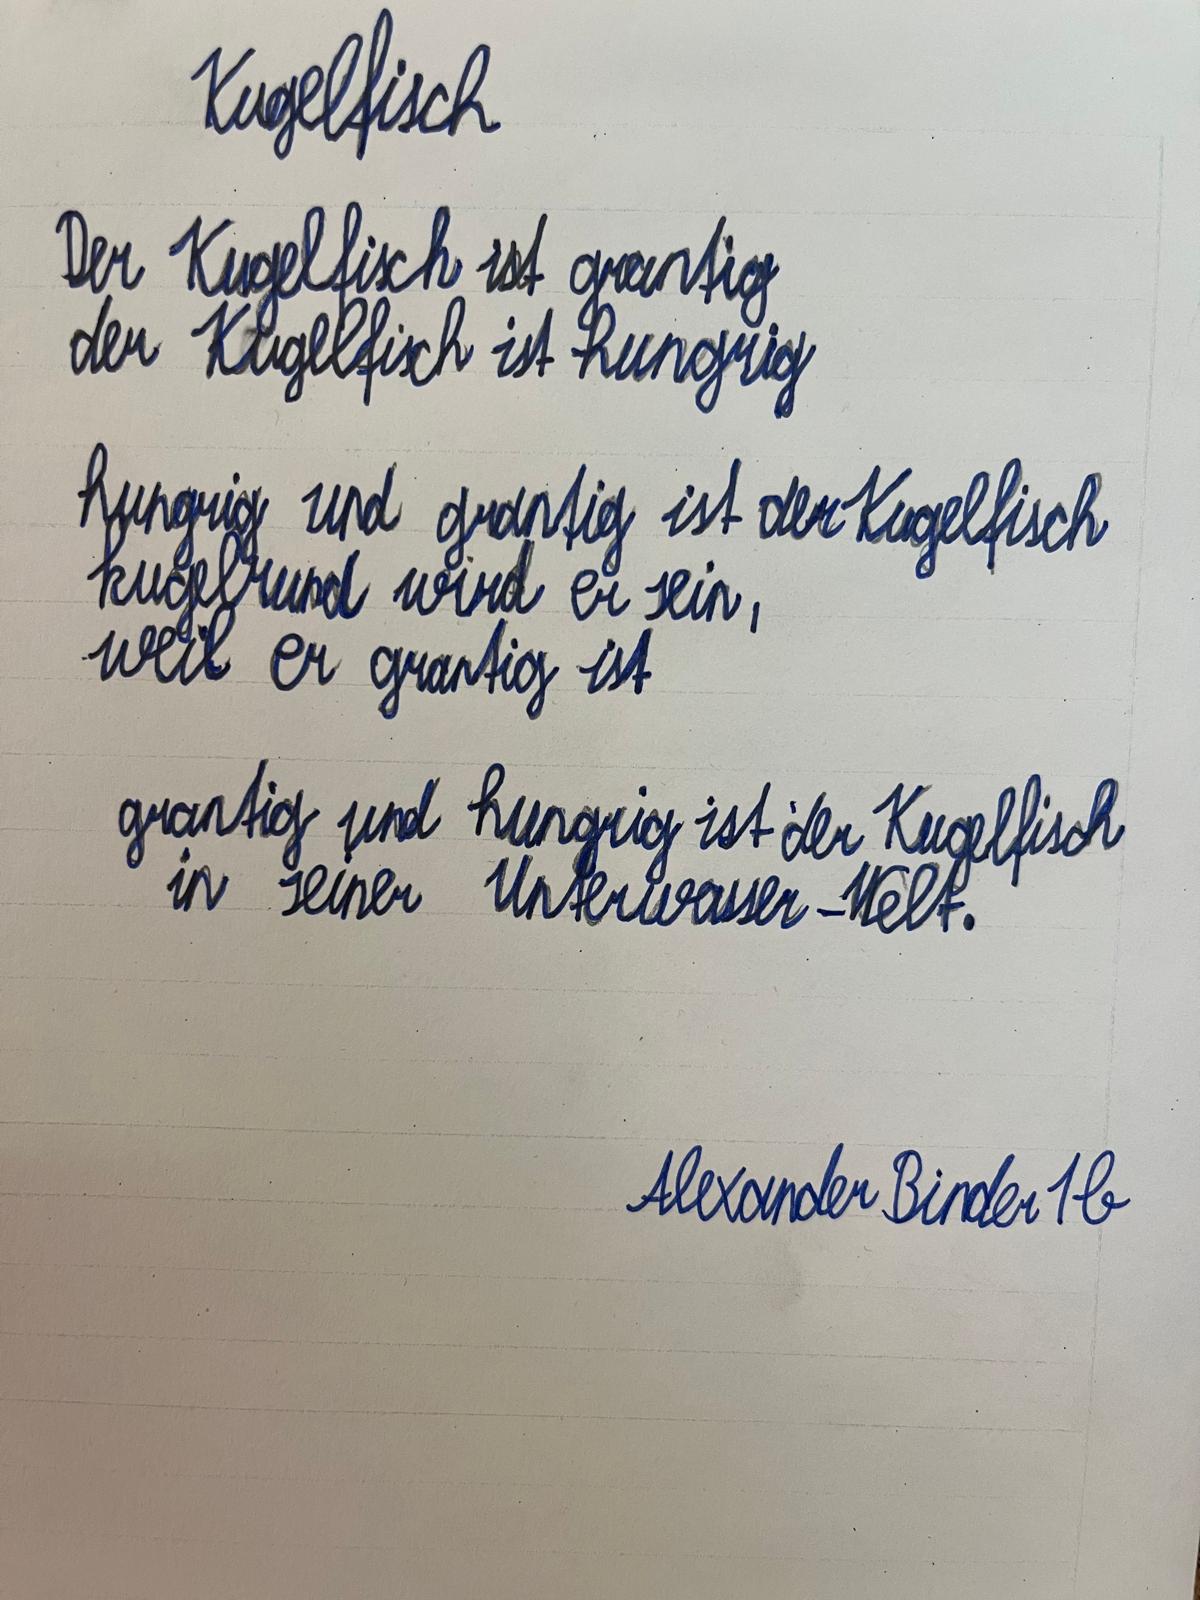 Kugelfisch
Der Kugelfisch ist grantig
der Kugelfisch ist hungrig
hungrig und grantig ist der Kugelfisch
kugelrund wird er sein,
weil er grantig ist
grantig und hungrig ist der Kugelfisch
in seiner Unterwasser-Welt.
Alexander Binder 1b